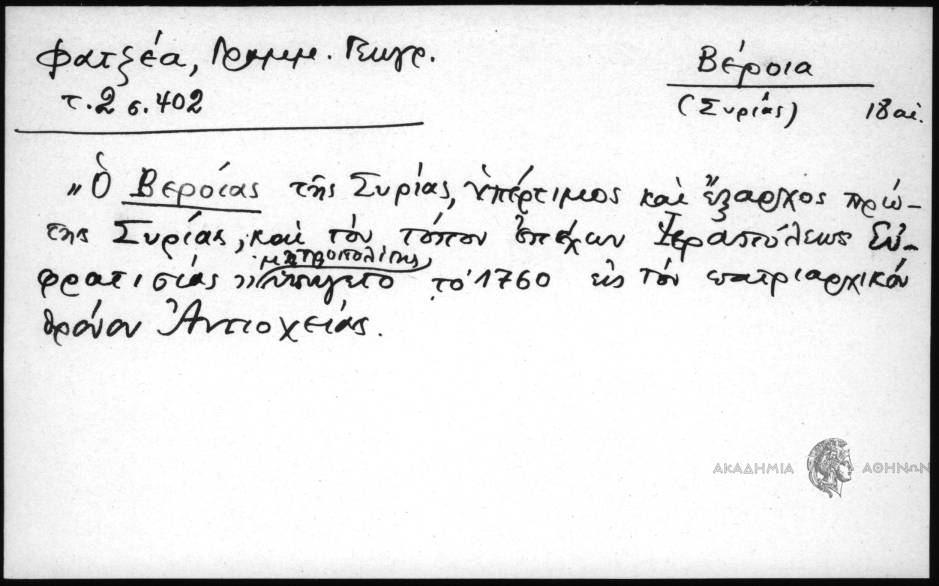 Φατζέα, Γραμμ. Γεωγρ.
τ. 2 σ. 402
Βέροια
(Συρίας) 18 αἰ.
"Ὁ Βεροίας τῆς Συρίας, ὑπέρτιμος καὶ ἔξαρχος πρώ-
της Συρίας, καὶ τὸν τόπον ἐπέχων Ἱεραπόλεως Εὐ-
μητροπολίτης
φρατισίας" ὑπήγετο τὸ 1760 εἰς τὸν πατριαρχικὸν
θρόνον Ἀντιοχείας.
ΑΚΑΔΗΜΙΑ ΑΘΗΝΩΝ